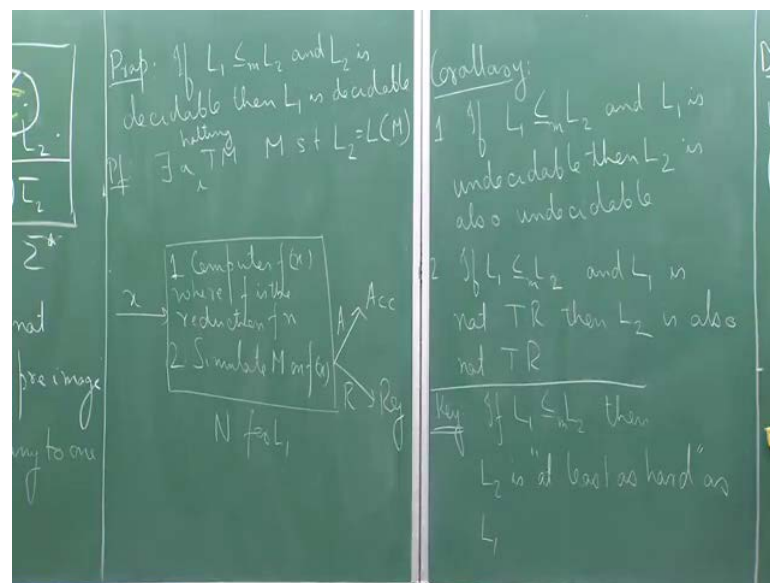 L₂.
L̄₂
Σ*
nat
pre image
any to one
Prop: If L₁ ≤ₘ L₂ and L₂ is
decidable then L₁ is decidable
halting
Pf ∃ a TM M s t L₂ = L(M)
x
1. Computes f(x)
where f is the
reduction fn
2. Simulate M on f(x)
A Acc
R Rej
N for L₁
Corollary:
1 If L₁ ≤ₘ L₂ and L₁ is
undecidable then L₂ is
also undecidable
2 If L₁ ≤ₘ L₂ and L₁ is
not TR then L₂ is also
not TR
Key If L₁ ≤ₘ L₂ then
L₂ is "at least as hard" as
L₁